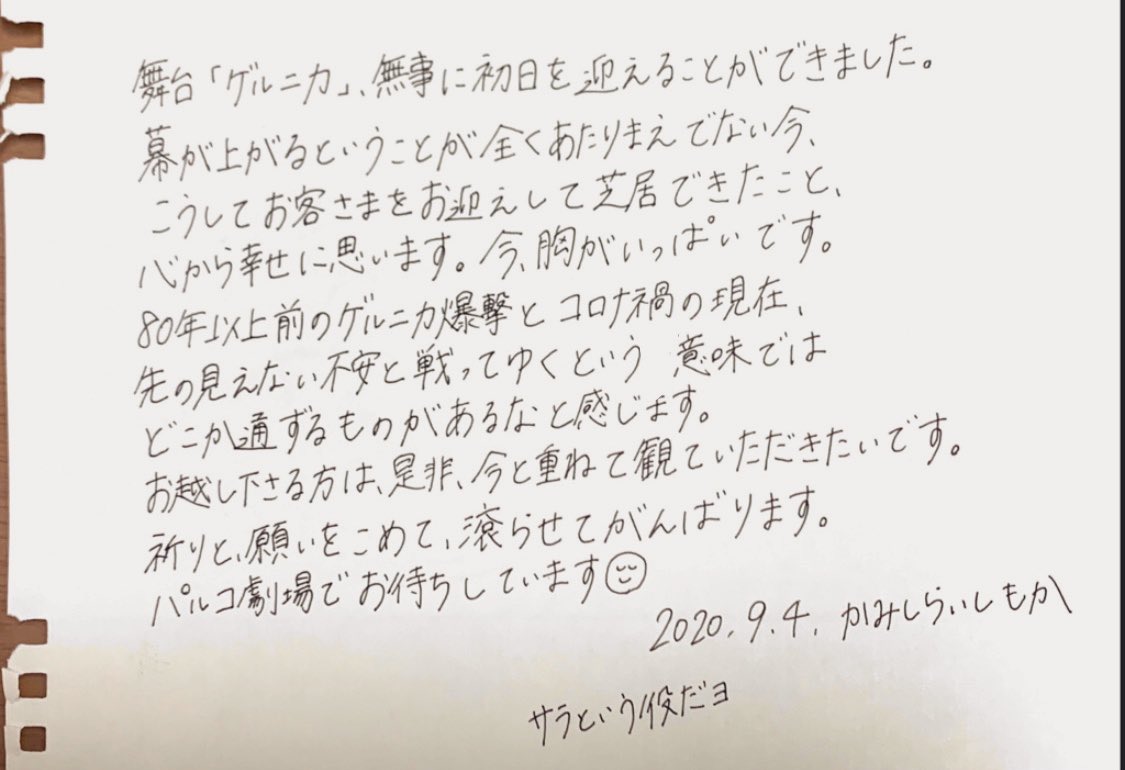 舞台「ゲルニカ」、無事に初日を迎えることができました。
幕が上がるということが全くあたりまえでない今、
こうしてお客さまをお迎えして芝居できたこと、
心から幸せに思います。今、胸がいっぱいです。
80年以上前のゲルニカ爆撃とコロナ禍の現在、
先の見えない不安と戦ってゆくという 意味では
どこか通ずるものがあるなと感じます。
お越し下さる方は、是非、今と重ねて観ていただきたいです。
祈りと、願いをこめて、滾らせてがんばります。
パルコ劇場でお待ちしています☺
2020.9.4. かみしらいしもか
サラという役だヨ